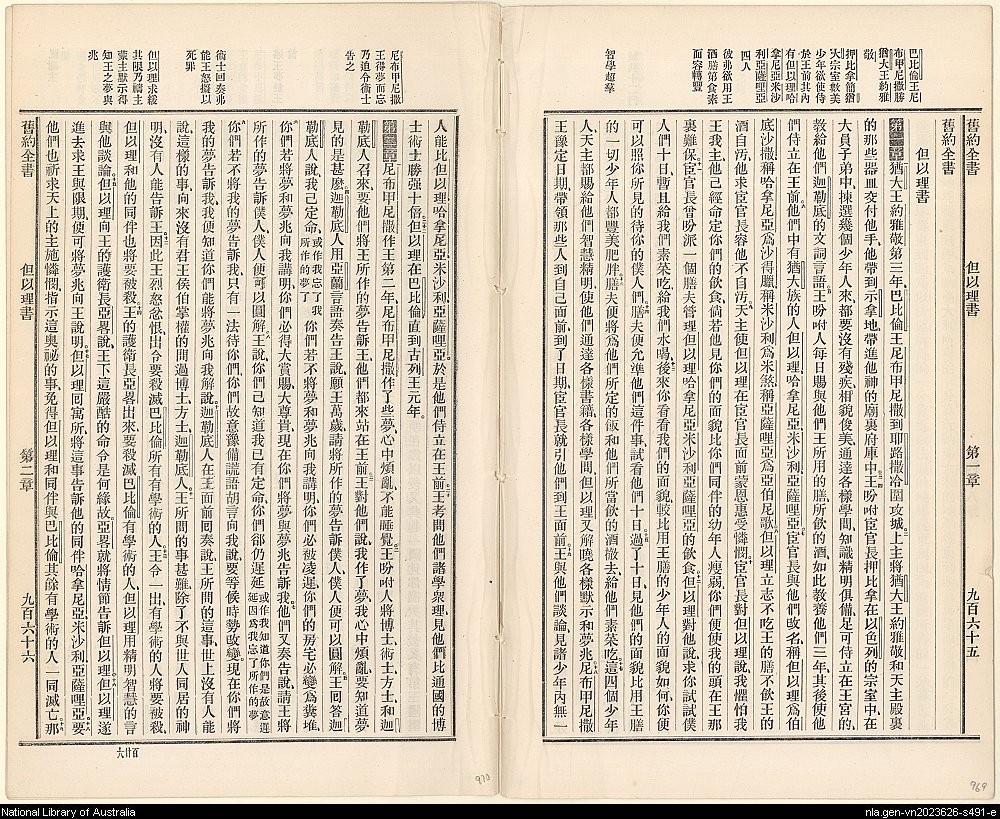 巴比倫王尼
布甲尼撒勝
猶大王約雅
敬
押比拿簡猶
大宗室數美
少年欲使侍
於王前其內
有但以理哈
拿尼亞米沙
利亞薩哩亞
四人
彼弗欲用王
酒膳第食素
而容轉豐
智學超羣
舊約全書 但以理書 第一章 九百六十五
舊約全書
但以理書
第一章 猶大王約雅敬第三年巴比倫王尼布甲尼撒到耶路撒冷圍攻城上主將猶大王約雅敬和天主殿裏
的那些器皿交付他手他帶到示拿地帶進他神的廟裏府庫中王吩咐宦官長押比拿在以色列的宗室中在
大員子弟中揀選幾個少年人來都要沒有殘疾相貌俊美通達各樣學問知識精明俱備足可侍立在王宮的
教給他們迦勒底的文詞言語王吩咐人每日賜與他們王所用的膳所飲的酒如此教養他們三年其後使他
們侍立在王前他們中有猶大族的人但以理哈拿尼亞米沙利亞薩哩亞宦官長與他們改名稱但以理爲伯
底沙撒稱哈拿尼亞爲沙得臘稱米沙利爲米煞稱亞薩哩亞爲亞伯尼歌但以理立志不吃王的膳不飲王的
酒自汚他求宦官長容他不自汚天主使但以理在宦官長面前蒙恩惠受憐憫宦官長對但以理說我懼怕我
王我主他已經命定你們的飲食倘若他見你們的面貌比你們同伴的幼年人瘦弱你們便使我的頭在王那
裏難保宦官長曾吩派一個膳夫管理但以理哈拿尼亞米沙利亞薩哩亞的飲食但以理對他說求你試試僕
人們十日暫且給我們素菜吃給我們水喝後來你看看我們的面貌較比用王膳的少年人的面貌如何你便
可以照你所見的待你的僕人們膳夫便允準他們這件事試看他們十日過了十日見他們的面貌比用王膳
的一切少年人都豐美肥胖膳夫便將爲他們所定的飯和他們所當飲的酒撤去給他們素菜吃這四個少年
人天主都賜給他們智慧精明使他們通達各樣書籍各樣學問但以理又解曉各樣默示和夢兆尼布甲尼撒
王豫定日期帶領那些人到自己面前到了日期宦官長就引他們到王面前王與他們談論見諸少年內無一
尼布甲尼撒
王得夢而忘
乃迫令術士
告之
術士回奏弗
能王怒擬以
死罪
但以理求緩
其限乃禱主
蒙主默示得
知王之夢與
兆
人能比但以理哈拿尼亞米沙利亞薩哩亞於是他們侍立在王前王考問他們諸學衆理見他們比通國的博
士術士勝强十倍但以理在巴比倫直到古列王元年
第二章 尼布甲尼撒作王第二年尼布甲尼撒作了些夢心中煩亂不能睡覺王吩咐人將博士術士方士和迦
勒底人召來要他們將王所作的夢告訴王他們都來站在王前王對他們說我作了夢我心中煩亂要知道夢
見的是甚麽迦勒底人用亞蘭言語奏告王說願王萬歲請將所作的夢告訴僕人僕人便可以圓解王囘答迦
勒底人說我己定命或作我忘了我所作的夢了你們若不將夢和夢兆向我講明你們必被凌遲你們的房宅必變爲糞堆
你們若將夢和夢兆向我講明你們必得大賞賜大尊貴現在你們將夢與夢兆告訴我他們又奏告說請王將
所作的夢告訴僕人僕人便可以圓解王說你們己知道我已有定命你們郤仍遲延或作我知道你們是故意遲延因爲我忘了所作的夢
你們若不將我的夢告訴我只有一法待你們你們故意豫備謊語胡言向我說要等候時勢改變現在你們將
我的夢告訴我我便知道你們能將夢兆向我解說迦勒底人在王面前囘奏說王所問的這事世上沒有人能
說這樣的事向來沒有君王侯伯掌權的問過博士方士迦勒底人王所問的事甚難除了不與世人同居的神
明沒有人能告訴王因此王烈怒忿恨出令要殺滅巴比倫所有有學術的人王令一出有學術的人將要被殺
但以理和他的同伴也將要被殺王的護衛長亞畧出來要殺滅巴比倫有學術的人但以理用精明智慧的言
與他談論但以理向王的護衛長亞畧說王下這嚴酷的命令是何緣故亞畧就將情節告訴但以理但以理遂
進去求王與限期便可將夢兆向王說明但以理囘寓所將這事告訴他的同伴哈拿尼亞米沙利亞薩哩亞要
他們也祈求天上的主施憐憫指示這奧祕的事免得但以理和同伴與巴比倫其餘有學術的人一同滅亡那
舊約全書 但以理書 第二章 九百六十六
百廿六
970
969
National Library of Australia
nla.gen-vn2023626-s491-e